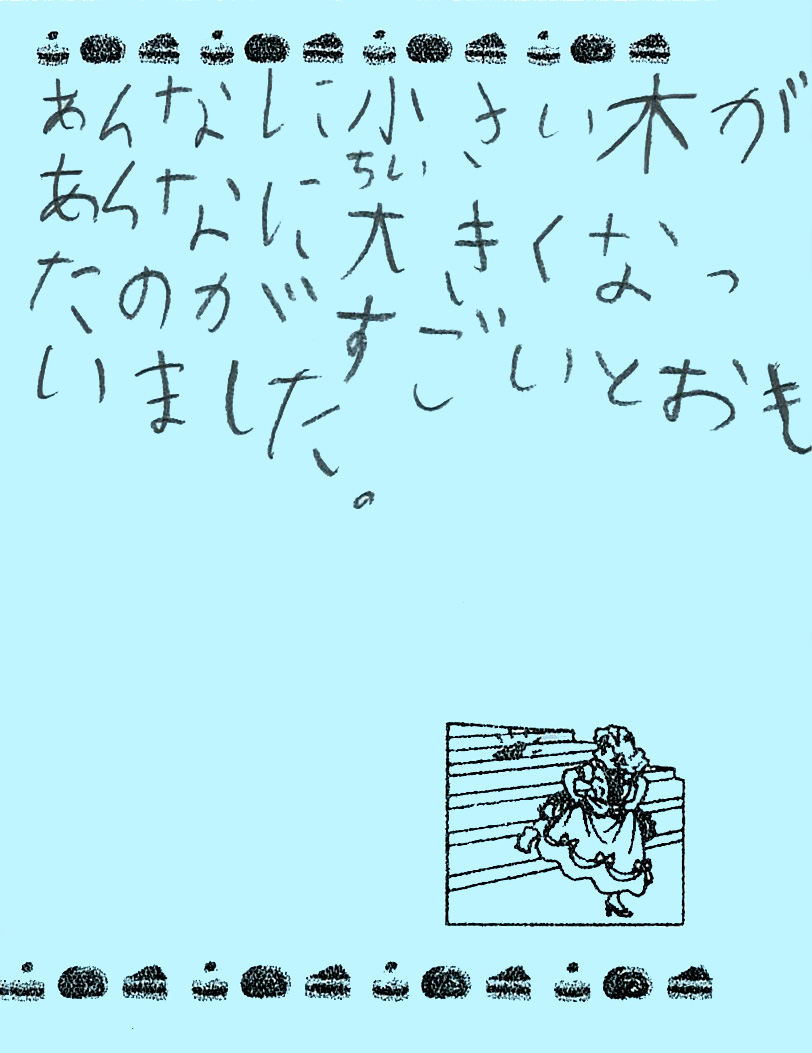 あんなに小さい木が
ちい
あんなに大きくなっ
たのがすごいとおも
いました。